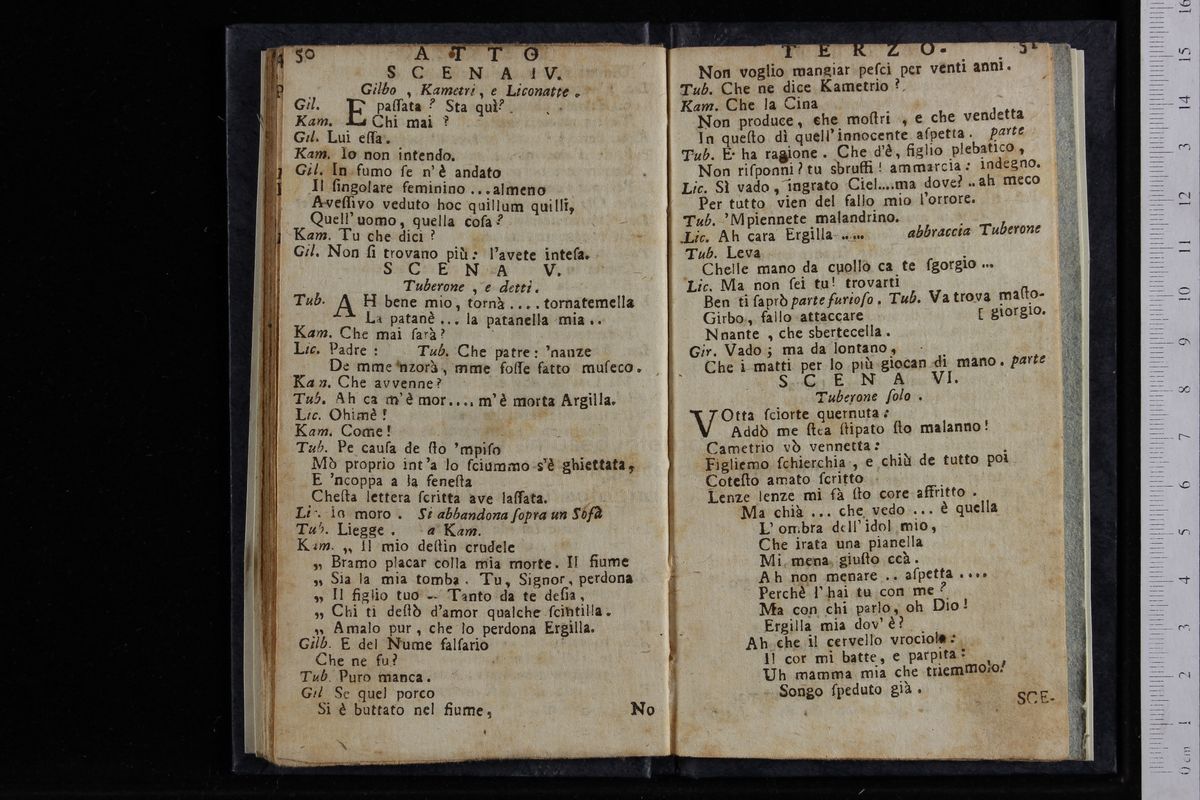 50 ATTO
SCENA IV.
Gilbo , Kametri , e Liconatte .
Gil. E paſſata ? Sta quì?
Kam. Chi mai ?
Gil. Lui eſſa.
Kam. Io non intendo.
Gil. In fumo ſe n'è andato
Il ſingolare feminino ...almeno
Aveſſivo veduto hoc quillum quilli,
Quell'uomo, quella coſa?
Kam. Tu che dici ?
Gil. Non ſi trovano più: l'avete inteſa.
SCENA V.
Tuberone , e detti.
Tub. AH bene mio, tornà .... tornatemella
La patanè ... la patanella mia ..
Kam. Che mai ſarà?
Lic. Padre : Tub. Che patre: 'nanze
De mme 'nzorà, mme foſſe fatto muſeco.
Kan. Che avvenne?
Tub. Ah ca m'è mor.... m'è morta Argilla.
Lic. Ohimè!
Kam. Come!
Tub. Pe cauſa de ſto 'mpiſo
Mò proprio int'a lo ſciummo s'è ghiettata,
E 'ncoppa a la feneſta
Cheſta lettera ſcritta ave laſſata.
Li. io moro . Si abbandona ſopra un Sofà
Tub. Liegge . a Kam.
Kam. „ Il mio deſtin crudele
„ Bramo placar colla mia morte. Il fiume
„ Sia la mia tomba . Tu, Signor, perdona
„ Il figlio tuo -- Tanto da te deſia,
„ Chi ti deſtò d'amor qualche ſcintilla.
„ Amalo pur , che lo perdona Ergilla.
Gilb. E del Nume falſario
Che ne fu?
Tub. Puro manca.
Gil Se quel porco
Si è buttato nel fiume,
No
TERZO. 51
Non voglio mangiar peſci per venti anni.
Tub. Che ne dice Kametrio ?
Kam. Che la Cina
Non produce, che moſtri , e che vendetta
In queſto dì quell'innocente aſpetta. parte
Tub. E' ha ragione . Che d'è, figlio plebatico,
Non riſponni? tu sbruffi! ammarcia: indegno.
Lic. Sì vado, ingrato Ciel....ma dove? ..ah meco
Per tutto vien del fallo mio l'orrore.
Tub. 'Mpiennete malandrino.
Lic. Ah cara Ergilla ..... abbraccia Tuberone
Tub. Leva
Chelle mano da cuollo ca te ſgorgio ...
Lic. Ma non ſei tu! trovarti
Ben ti ſaprò parte furioſo. Tub. Va trova maſto-
Girbo, fallo attaccare [ giorgio.
Nnante , che sbertecella .
Gir. Vado ; ma da lontano,
Che i matti per lo più giocan di mano. parte
SCENA VI.
Tuberone ſolo .
VOtta ſciorte quernuta:
Addò me ſtea ſtipato ſto malanno!
Cametrio vò vennetta:
Figliemo ſchierchia , e chiù de tutto poi
Coteſto amato ſcritto
Lenze lenze mi fà ſto core affritto .
Ma chià ... che vedo ... è quella
L'ombra dell'idol mio,
Che irata una pianella
Mi mena giuſto ccà.
Ah non menare .. aſpetta ....
Perchè l'hai tu con me ?
Ma con chi parlo, oh Dio!
Ergilla mia dov'è?
Ah che il cervello vrociola:
Il cor mi batte, e parpita:
Uh mamma mia che triemmolo!
Songo ſpeduto già .
SCE-
0 cm 1 2 3 4 5 6 7 8 9 10 11 12 13 14 15 16